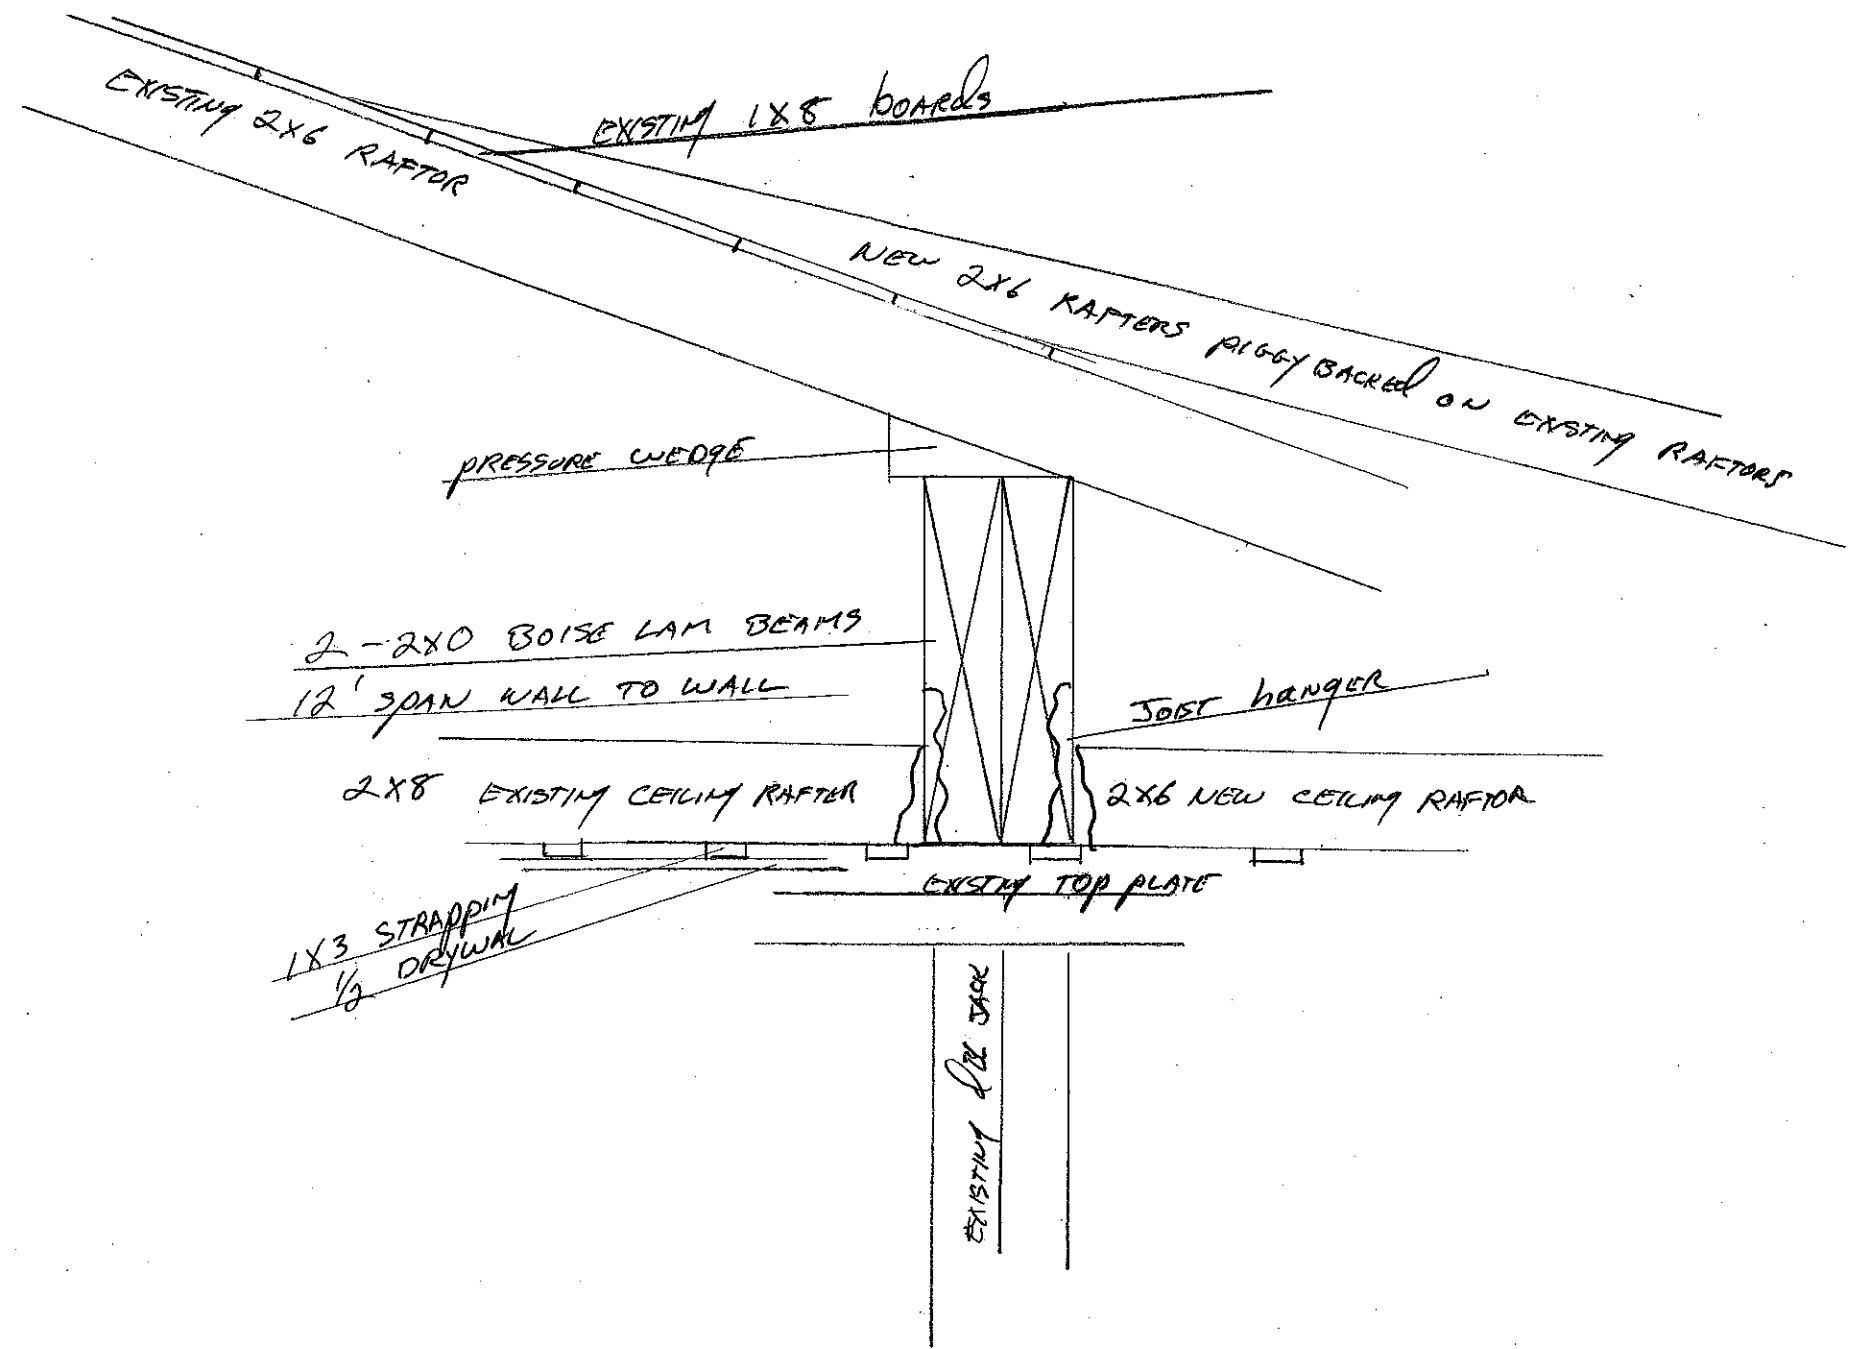 EXISTING 2X6 RAFTOR
EXISTING 1X8 boARds
NEW 2X6 RAFTERS PIGGYBACKEd ON EXISTING RAFTORS
PRESSURE WEDGE
2-2X0 BOISE LAM BEAMS
12' SPAN WALL TO WALL
JOIST hANGER
2X8 EXISTING CEILING RAFTER
2X6 NEW CEILING RAFTOR
EXISTING TOP PLATE
1X3 STRAPPING
1/2 DRYWAL
EXISTING dBL JACK